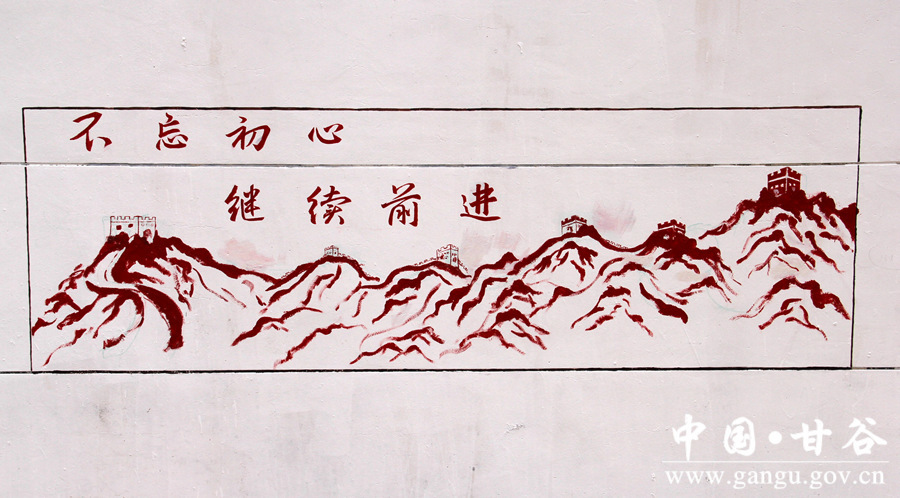 不忘初心
继续前进
中国·甘谷
www.gangu.gov.cn